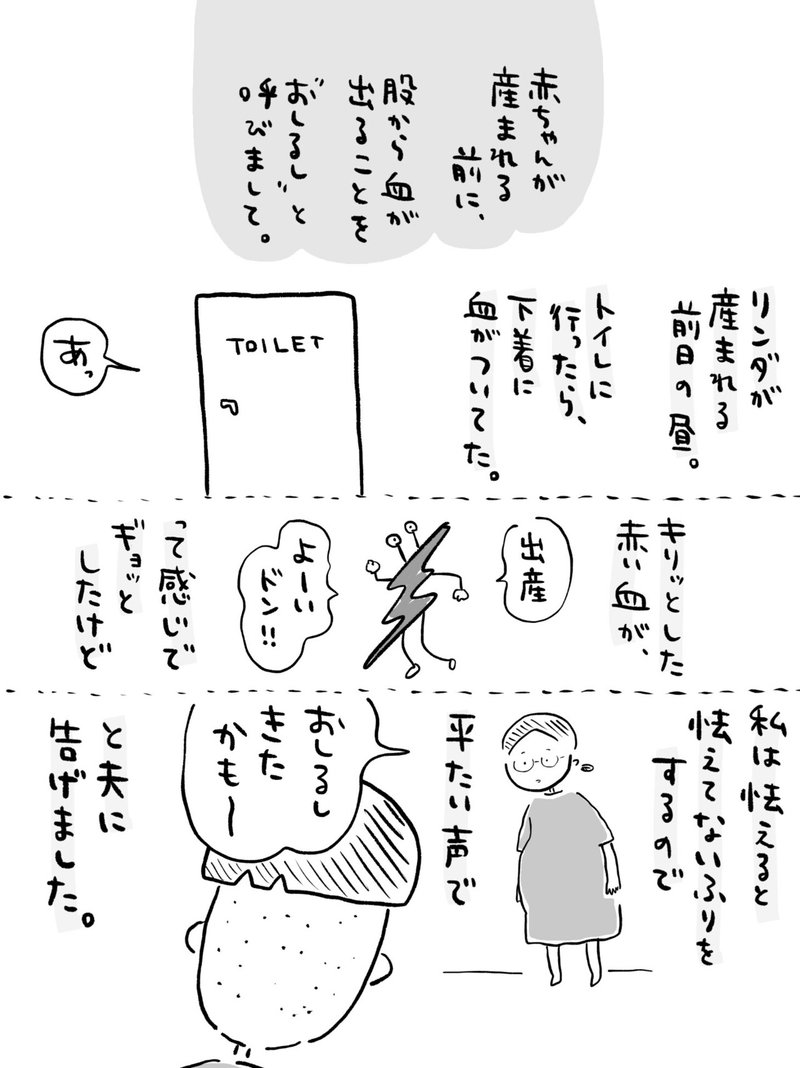 赤ちゃんが
産まれる
前に、
股から血が
出ることを
"おしるし"と
呼びまして。
リンダが
産まれる
前日の昼。
トイレに
行ったら、
下着に
血がついてた。
TOILET
あっ
キリッとした
赤い血が、
出産
よーい
ドン!!
って感じで
ギョッと
したけど
私は怯えると
怯えてないふりを
するので
平たい声で
おしるし
きた
かも〜
と夫に
告げました。